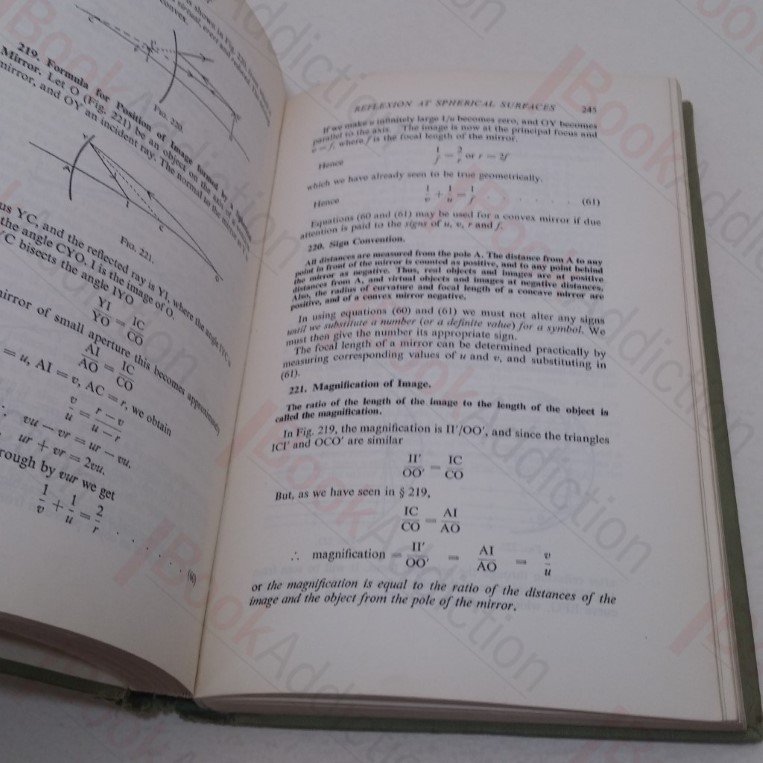 FIG. 220.
219. Formula for Position of Image formed by a Spherical
Mirror. Let O (Fig. 221) be an object on the axis of
mirror, and OY an incident ray. The normal to the
FIG. 221.
us YC, and the reflected ray is YI, where the angle
the angle CYO. I is the image of O.
YC bisects the angle IYO
YI/YO = IC/CO
mirror of small aperture this becomes approximately
AI/AO = IC/CO
= u, AI = v, AC = r, we obtain
v/u = r − v/u − r
vu − vr = ur − vu.
ur + vr = 2vu.
rough by vur we get
1/v + 1/u = 2/r . . . . . . (60)
REFLEXION AT SPHERICAL SURFACES 245
If we make u infinitely large 1/u becomes zero, and OY becomes
parallel to the axis. The image is now at the principal focus and
v = f, where f is the focal length of the mirror.
Hence 1/f = 2/r or r = 2f
which we have already seen to be true geometrically.
Hence 1/v + 1/u = 1/f . . . . . (61)
Equations (60 and (61) may be used for a convex mirror if due
attention is paid to the signs of u, v, r and f.
220. Sign Convention.
All distances are measured from the pole A. The distance from A to any
point in front of the mirror is counted as positive, and to any point behind
the mirror as negative. Thus, real objects and images are at positive
distances from A, and virtual objects and images at negative distances.
Also, the radius of curvature and focal length of a concave mirror are
positive, and of a convex mirror negative.
In using equations (60) and (61) we must not alter any signs
until we substitute a number (or a definite value) for a symbol. We
must then give the number its appropriate sign.
The focal length of a mirror can be determined practically by
measuring corresponding values of u and v, and substituting in
(61).
221. Magnification of Image.
The ratio of the length of the image to the length of the object is
called the magnification.
In Fig. 219, the magnification is II′/OO′, and since the triangles
ICI′ and OCO′ are similar
II′/OO′ = IC/CO
But, as we have seen in § 219,
IC/CO = AI/AO
∴ magnification = II′/OO′ = AI/AO = v/u
or the magnification is equal to the ratio of the distances of the
image and the object from the pole of the mirror.
BookAddiction